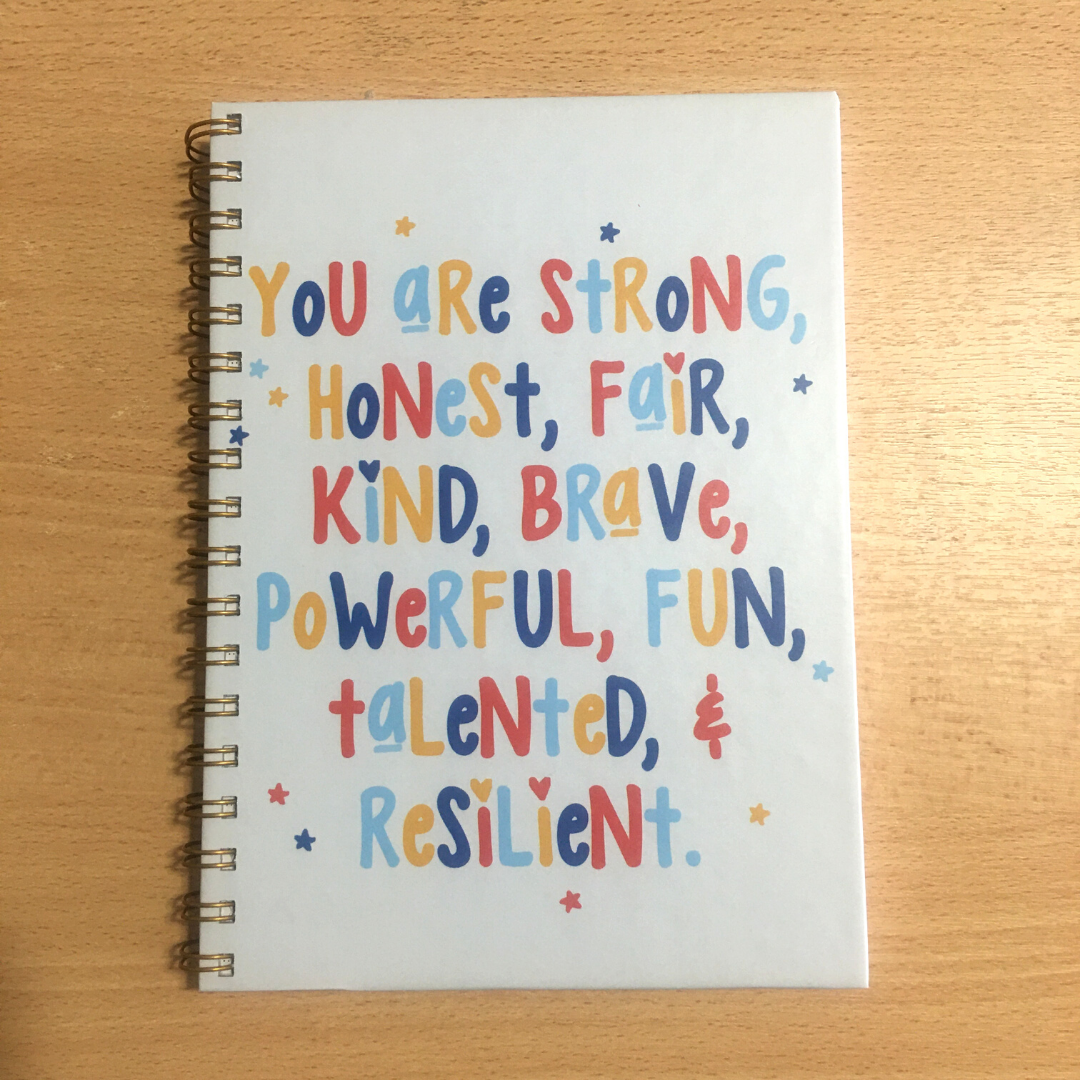 YoU aRe StRoNG,
HoNeSt, FaiR,
KiND, BRaVe,
PoWeRFUL, FUN,
taLeNteD, &
ReSiLieNt.